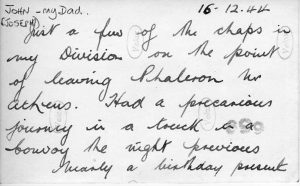 JOHN - my Dad.
(JOSEPH)
16-12.44
Just a few of the chaps in
my Division on the point
of leaving Phaleron nr
Athens. Had a precarious
journey in a truck in a
convoy the night previous
Nearly a birthday present